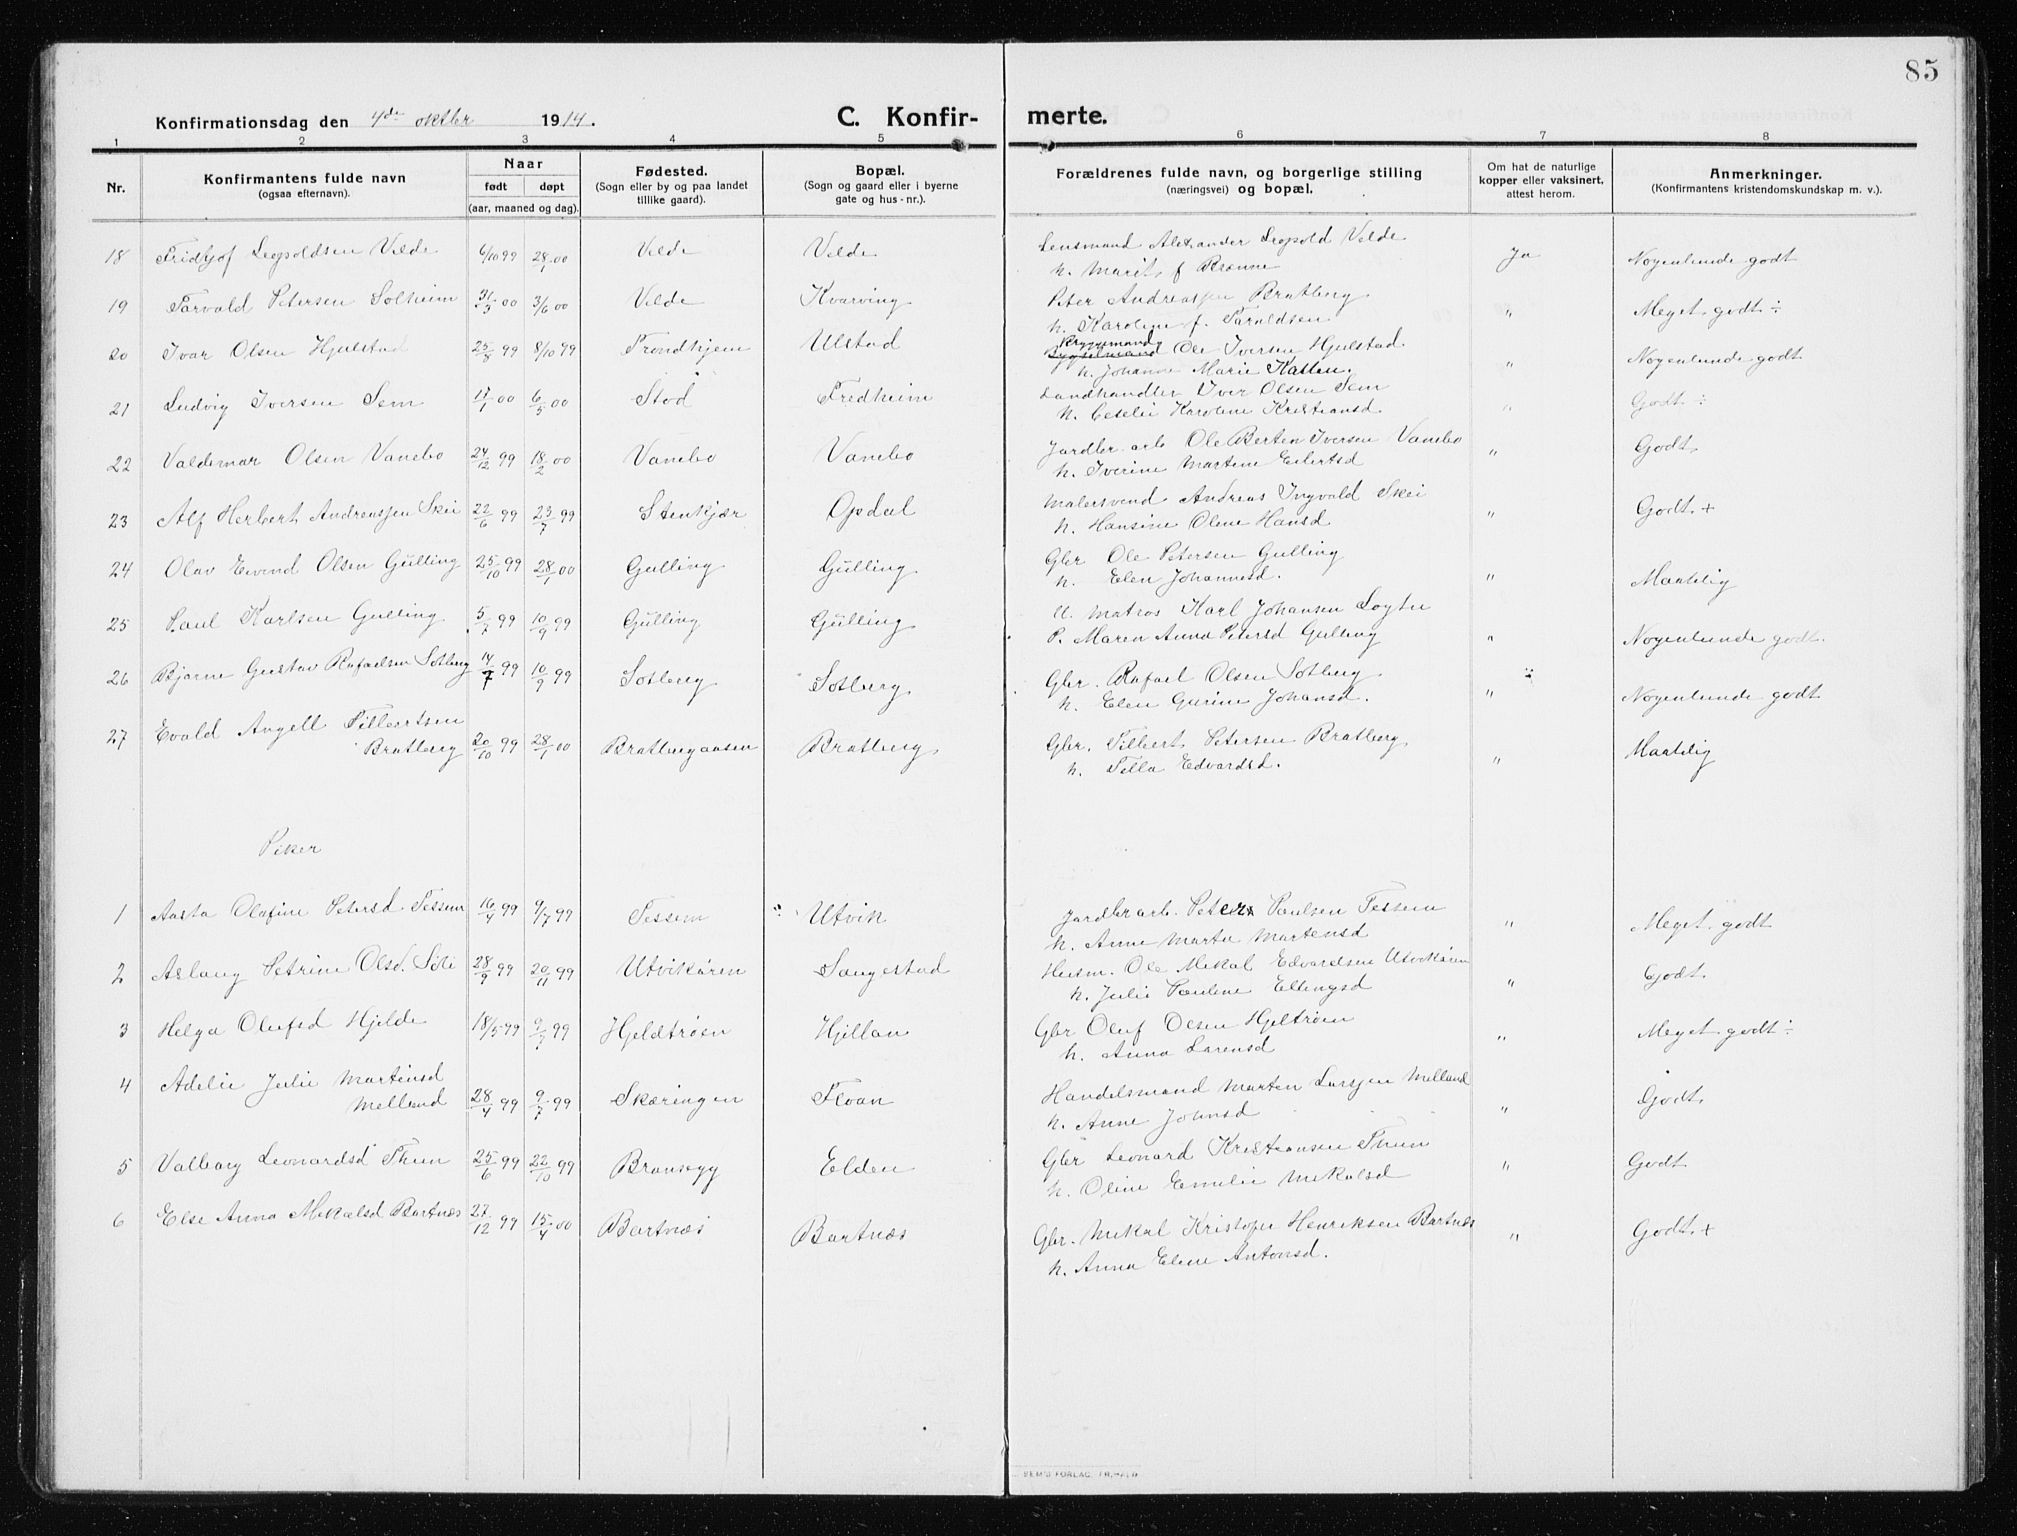 85
Konfirmationsdag den 4de oktber 1914. C. Konfirmerte.
1 2 3 4 5 6 7 8
Nr. Konfirmantens fulde navn (ogsaa efternavn). Naar født døpt (aar, maaned og dag). Fødested. (Sogn eller by og paa landet tillike gaard). Bopæl. (Sogn og gaard eller i byerne gate og hus-nr.). Forældrenes fulde navn, og borgerlige stilling (næringsvei) og bopæl. Om hat de naturlige kopper eller vaksinert, attest herom. Anmerkninger. (Konfirmantens kristendomskundskap m. v.).
18 Fridtjof Leopoldsen Velde 6/10 99 28/1 00 Velde Velde Lensmand Alexander Leopold Velde Ja Nogenlunde godt
h. Marit f Brænne
19 Torvald Petersen Solheim 31/3 00 3/6 00 Velde Kvarving Peter Andreassen Bratberg " Meget godt ÷
h. Karoline f.
20 Ivar Olsen Hjulstad 25/8 99 8/10 99 Trondhjem Ulstad Bryggemand Ole Iversen Hjulstad " Nogenlunde godt
h. Johanne Marie Katten.
21 Ludvig Iversen Sem 11/1 00 6/5 00 Stod Fredheim Landhandler Iver Olsen Sem " Godt ÷
h. Ceselie Karoline Kristiansd.
22 Valdemar Olsen Vanebo 24/12 99 18/2 00 Vanebo Vanebo Jordbr. arb Ole Berten Iversen Vanebo " Godt
h. Iverine Martine Eilertsd
23 Alf Herbert Andreassen Skei 22/6 99 23/7 99 Stenkjær Opdal Malersvend Andreas Ingvald Skei " Godt +
h. Hansine Olene Hansd
24 Olav Eivind Olsen Gulling 25/10 99 28/1 00 Gulling Gulling Gbr Ole Petersen Gulling " Maatelig
h. Elen Johannesd.
25 Paul Karlsen Gulling 5/7 99 10/9 99 Gulling Gulling U. Matros Karl Johansen Løgtu " Nogenlunde godt.
P. Maren Anna Petersd Gulling
26 Bjarne Gustav Rafaelsen Sotberg 14/7 99 10/9 99 Sotberg Sotberg Gbr. Rafael Olsen Sotberg " Nogenlunde godt
h. Elen Gurine Johansd.
27 Evald Angell Tilbertsen
Bratberg 20/10 99 28/1 00 Bratbergaasen Bratberg Gbr. Tilbert Petersen Bratberg " Maatelig
h. Tella Edvardsd.
Piker
1 Aasta Olafine Petersd Tessem 16/4 99 9/7 99 Tessem Utvik Jordbr arb. Peter Paulsen Tessem " Meget godt
h. Anne Marta Martensd
2 Aslaug Petrine Olsd. Søli 28/9 99 20/11 99 Utvikåren Saugestad Husm. Ole Mekal Edvardsen Utvikåren " Godt
h. Julie Pauline Ellingsd
3 Helga Olufsd Hjelde 18/5 99 9/7 99 Hjeldtrøen Hjellan Gbr Oluf Olsen Hjeltrøen " Meget godt ÷
h. Anna Larensd
4 Adelie Julie Martinsd
Melland 28/4 99 9/7 99 Skæringen Floan Handelsmand Marten Larssen Melland " Godt
h. Anne Johnsd
5 Valborg Leonardsd Thun 25/6 99 22/10 99 Bransryg Elden Gbr Leonard Kristiansen Thun " Godt
h. Oline Emilie Mekalsd
6 Else Anna Mekalsd Bartnæs 27/12 99 15/4 00 Bartnæs Bartnæs Gbr. Mekal Kristofer Henriksen Bartnæs " Godt +
h. Anna Elene Antonsd.
SEM'S FORLAG, FR.HALD